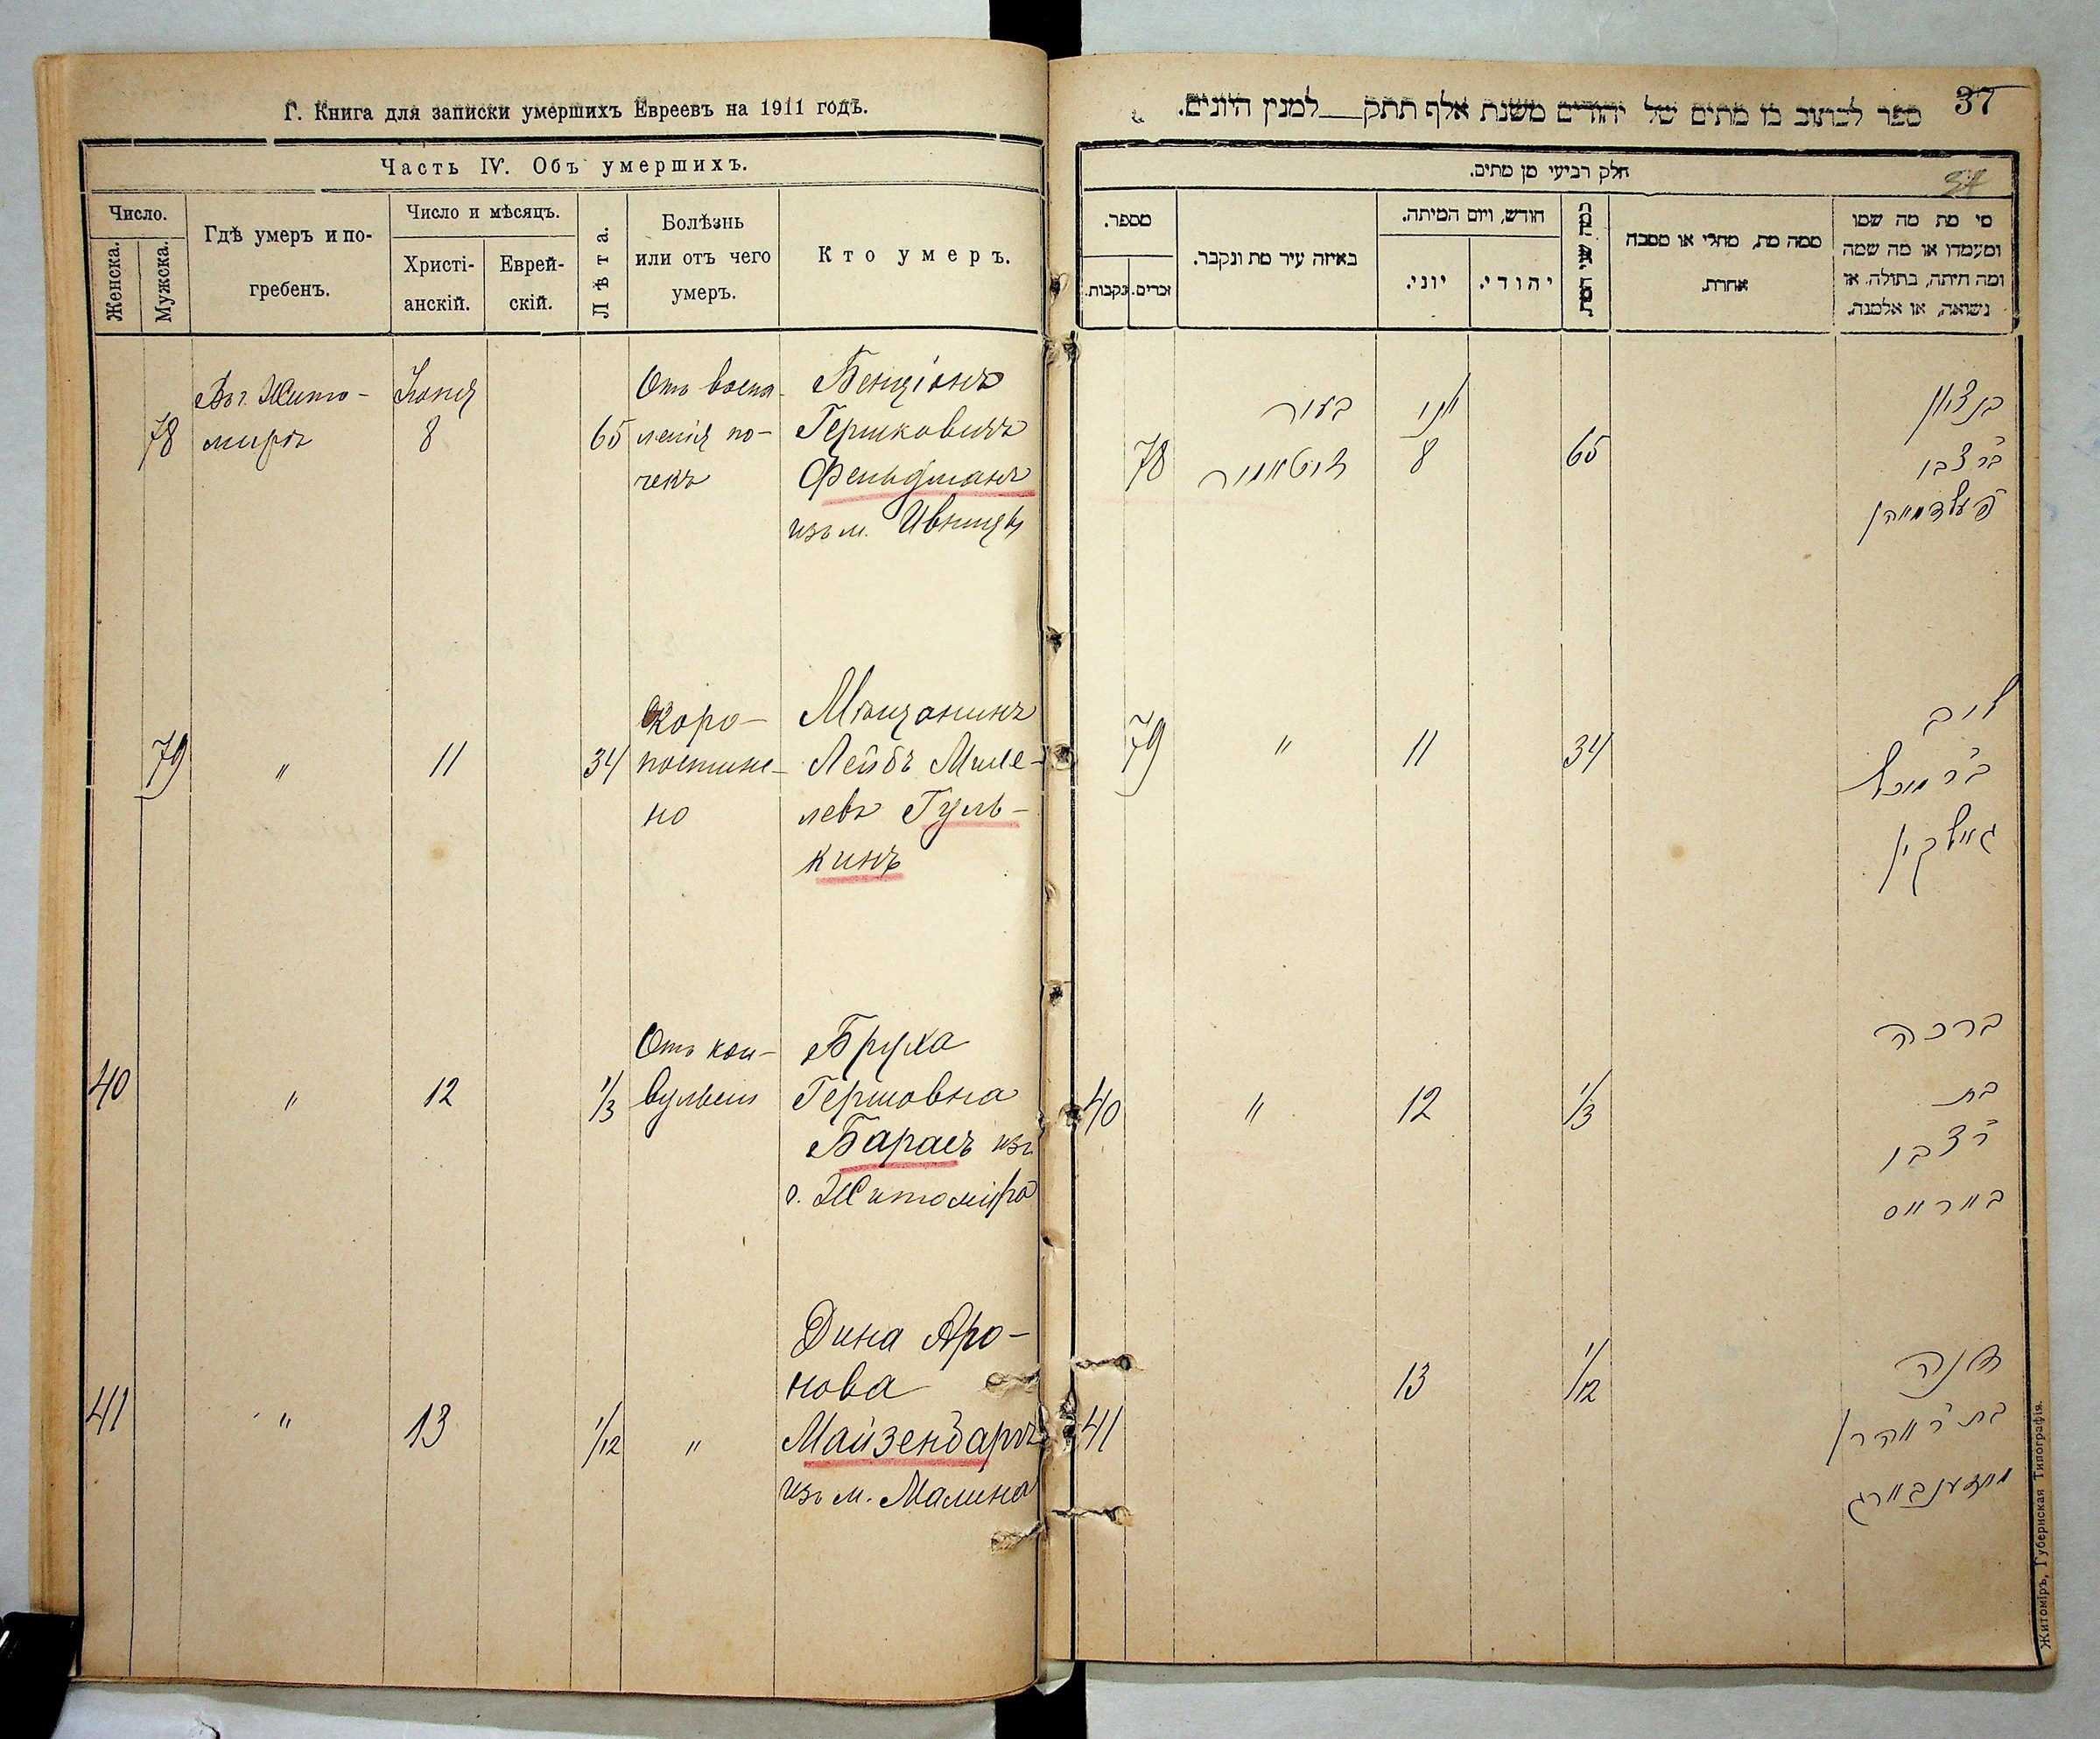 Г. Книга для записки умершихъ Евреевъ на 1911 годъ.
Часть IV. Объ умершихъ.
Число.
Женска.
Мужска.
Гдѣ умеръ и по-
гребенъ.
Число и мѣсяцъ.
Христі-
анскій.
Еврей-
скій.
Лѣта.
Болѣзнь
или отъ чего
умеръ.
Кто умеръ.
78
Въ г. Жито-
мирѣ
Іюня
8
65
Отъ воспа-
ленія по-
чекъ
Бенціонъ
Гершковичъ
Фельдманъ
изъ м. Ивницы
79
"
11
34
Скоро-
постиж-
но
Мѣщанинъ
Лейбъ Михе-
левъ Гуль-
кинъ
40
"
12
1/3
Отъ кон-
вульсіи
Бруха
Гершовна
Барасъ изъ
г. Житоміра
41
"
13
1/12
"
Дина Аро-
нова
Майзенбаргъ
изъ м. Малина
ספר לכתוב בו מתים של יהודים משנת אלף תתק למנין היונים.
37
חלק רביעי מן מתים.
37
מספר.
נקבות.
זכרים.
באיזה עיר מת ונקבר.
חודש, ויום המיתה.
יוני.
יהודי.
כמה שני המת
ממה מת, מחלי או מסבה
אחרת.
מי מת מה שמו
ומעמדו או מה שמה
ומה היתה, בתולה, או
נשואה, או אלמנה.
78
בעיר
זיטאמיר
יוני
8
65
בן ציון
ב״ר צבי
פעלדמאן
79
"
11
34
ליב
ב״ר מיכל
גולקין
40
"
12
1/3
ברכה
בת
ר׳ צבי
באראס
41
13
1/12
דינה
בת ר׳ אהרן
מייזענבארג
Житоміръ, Губернская Типографія.